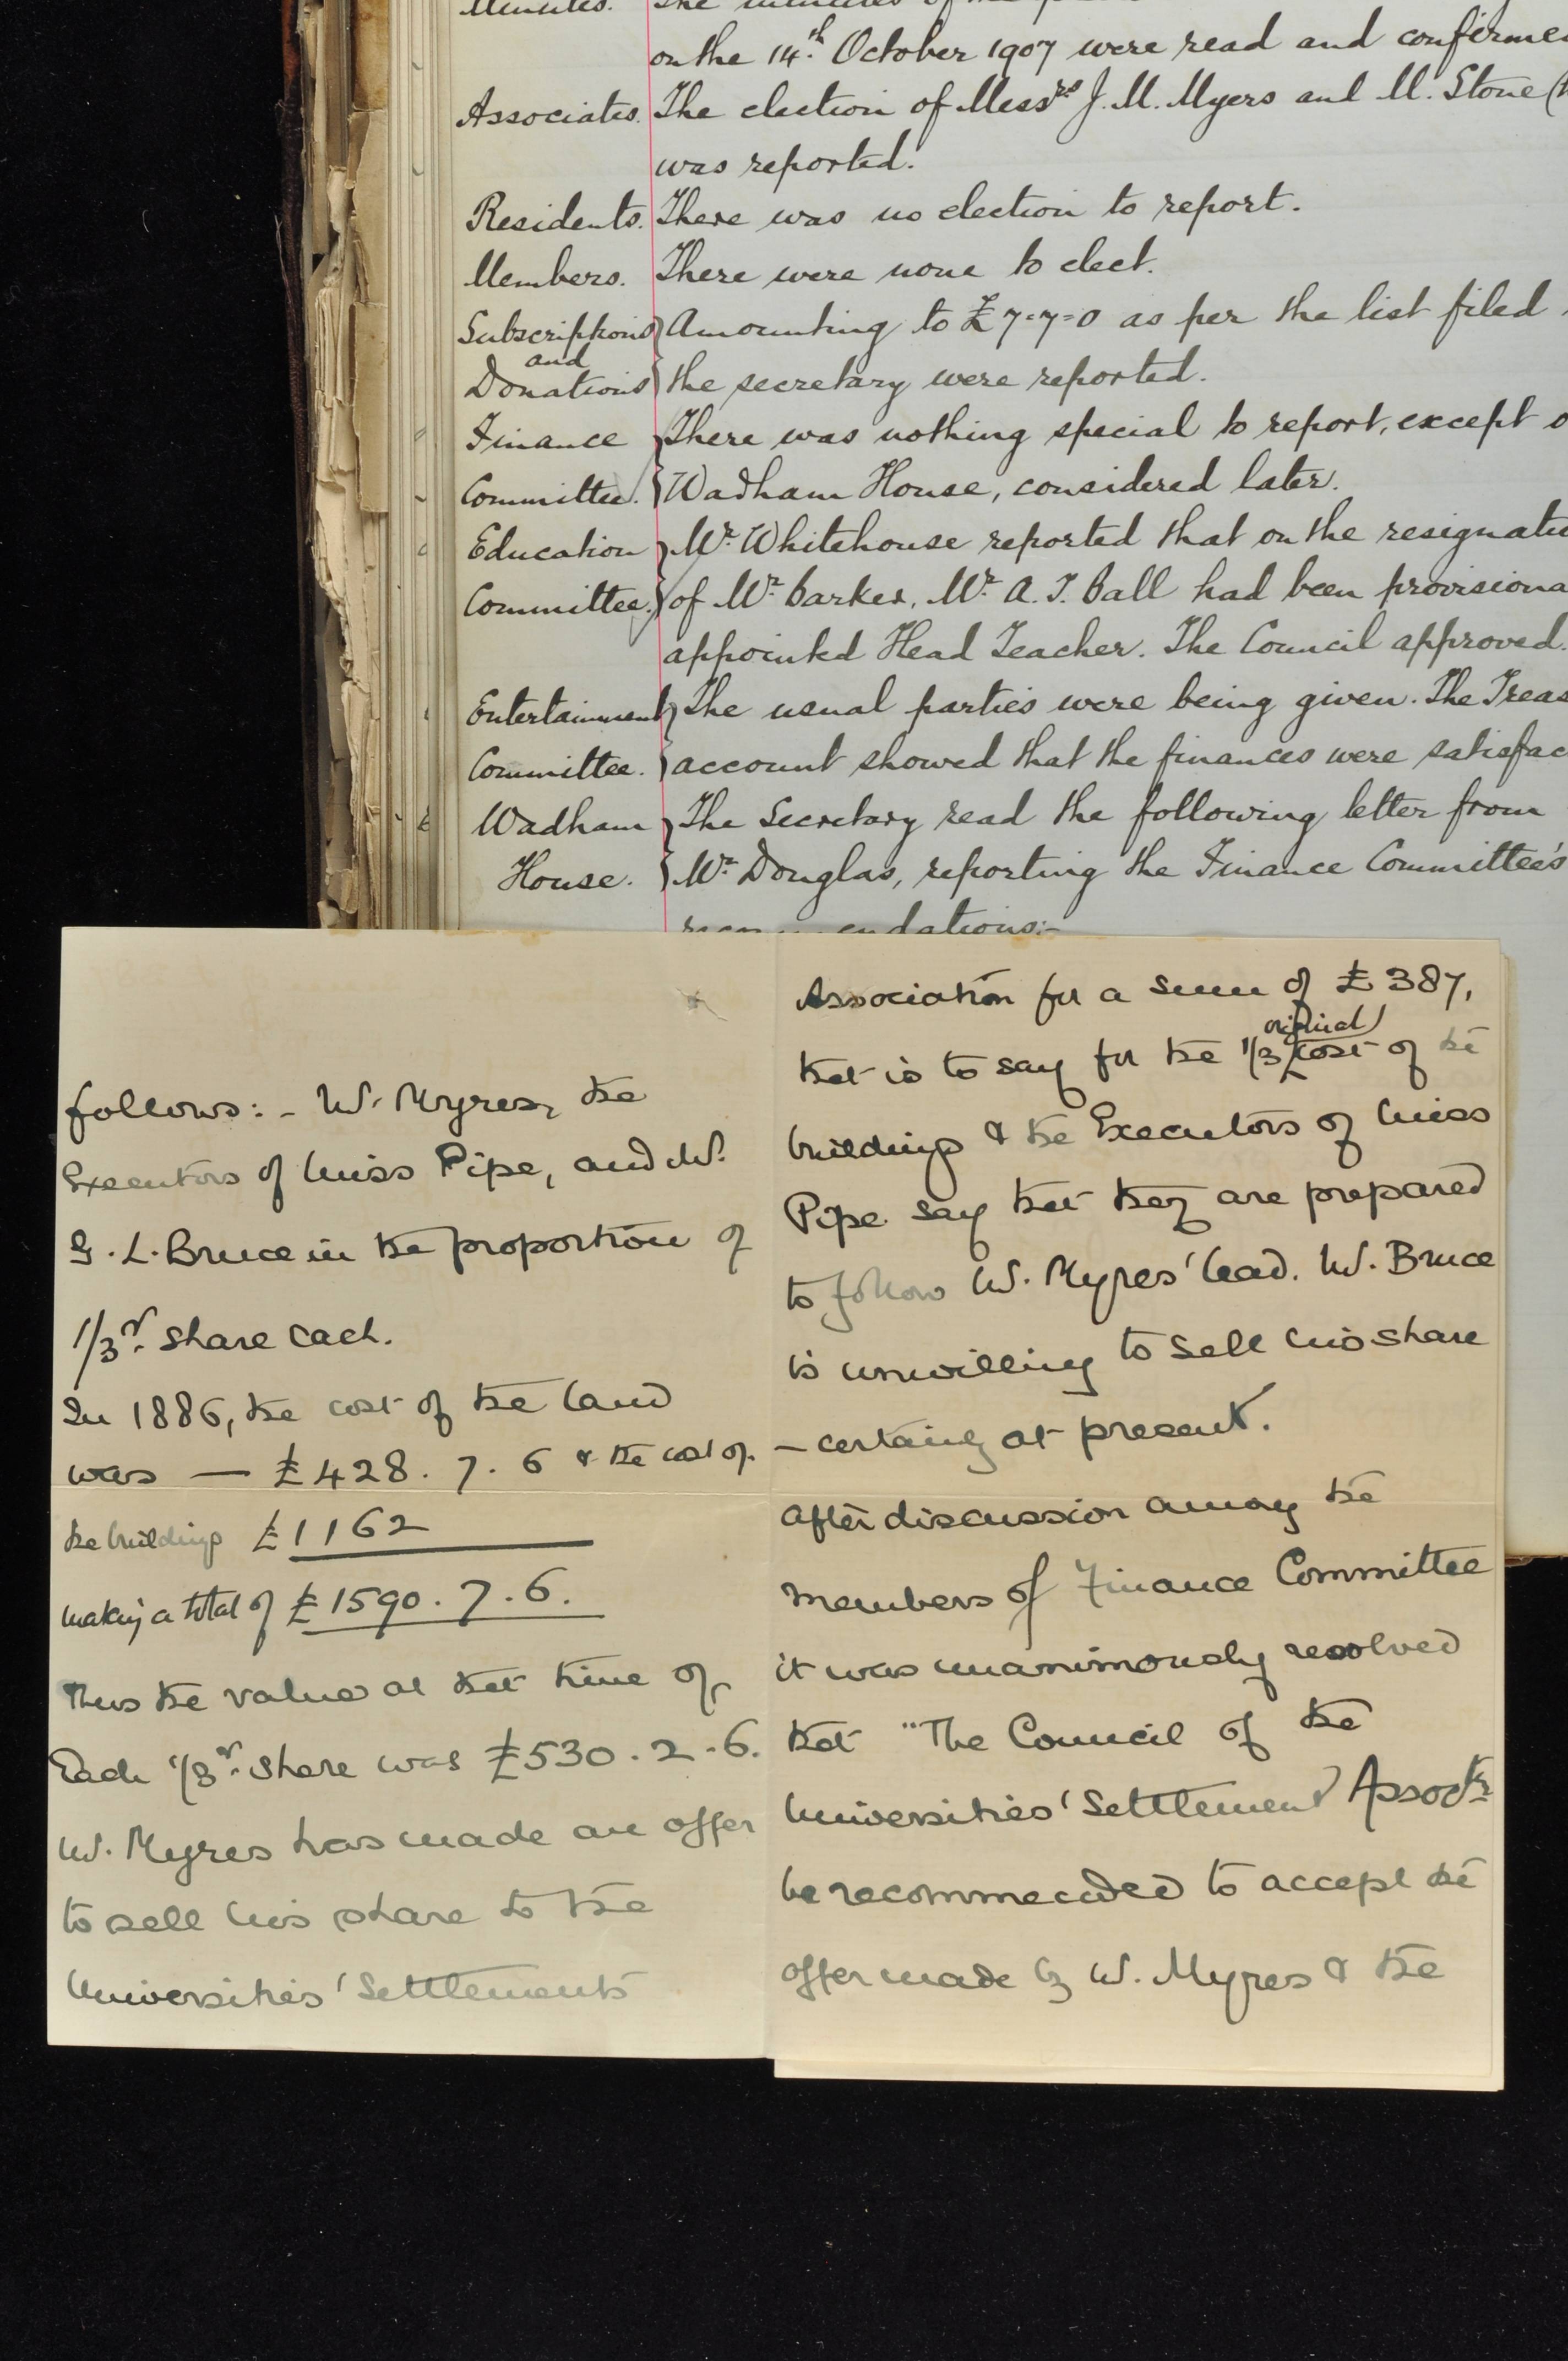 Minutes. The minutes of the
on the 14th October 1907 were read and confirme
Associates. The election of Messrs J. M. Myers and M. Stone
was reported.
Residents. There was no election to report.
Members. There were none to elect.
Subscriptions Amounting to £7=7=0 as per the list filed
and
Donations the secretary were reported.
Finance There was nothing special to report, except o
Committee. Wadham House, considered later.
Education Mr. Whitehouse reported that on the resignatio
Committee. of Mr. Barker, Mr. A. T. Ball had been provisiona
appointed Head Teacher. The Council approved.
Entertainment The usual parties were being given. The Treas
Committee. account showed that the finances were satisfac
Wadham The Secretary read the following letter from
House. Mr. Douglas, reporting the Finance Committee's
recommendations:-
follows: - Mr. Myres, the
Executors of Miss Pipe, and Mr.
G. L. Bruce in the proportion of
1/3rd. share each.
In 1886, the cost of the land
was — £428. 7. 6 & the cost of
the buildings £1162
making a total of £1590. 7. 6.
Thus the value at that time of
Each 1/3rd. share was £530. 2. 6.
Mr. Myres has made an offer
to sell his share to the
Universities' Settlements
Association for a sum of £387,
that is to say for the 1/3 original cost of the
buildings & the Executors of Miss
Pipe say that they are prepared
to follow Mr. Myres' lead. Mr. Bruce
is unwilling to sell his share
– certainly at present.
After discussion among the
members of Finance Committee
it was unanimously resolved
that "The Council of the
Universities' Settlement Assoctn
be recommended to accept the
offer made by Mr. Myres & the